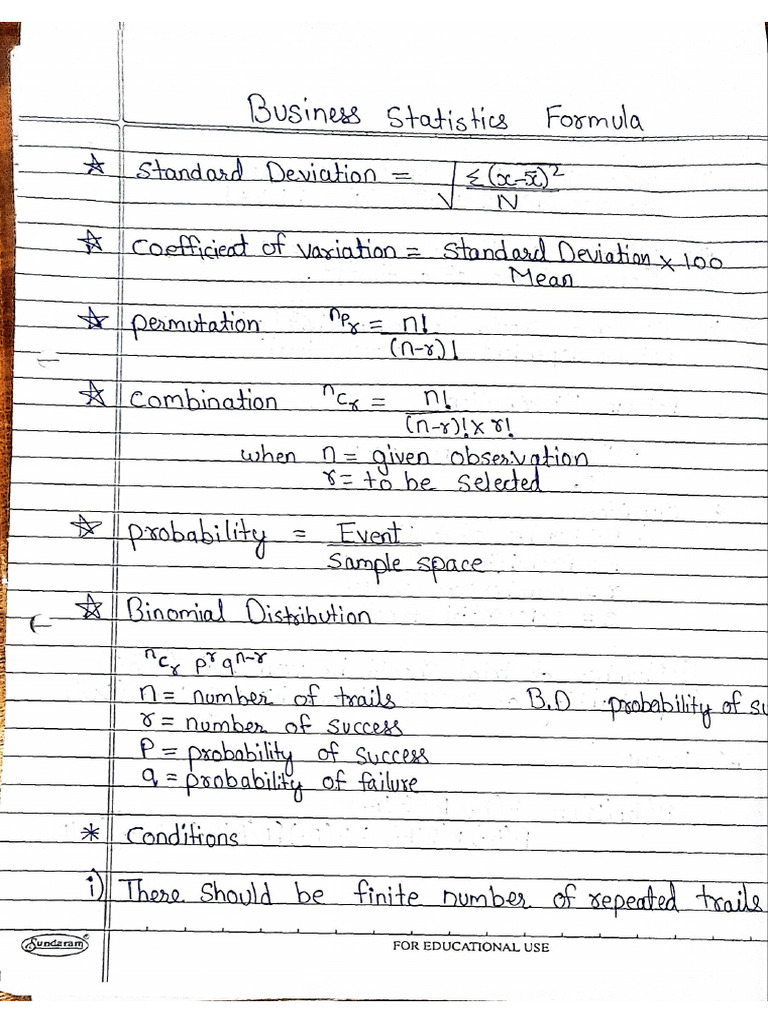 Business Statistics Formula
☆ Standard Deviation = √ Σ(x-x̄)² / N
☆ Coefficieat of variation = Standard Deviation / Mean × 100
☆ permutation ⁿPᵣ = n! / (n-r)!
☆ Combination ⁿCᵣ = n! / (n-r)! × r!
when n = given observation
r = to be selected
☆ probability = Event / Sample space
☆ Binomial Distribution
ⁿCᵣ pʳ qⁿ⁻ʳ
n = number of trails B.D probability of su
r = number of success
P = probability of success
q = probability of failure
* Conditions
i) There should be finite number of repeated trails
Sundaram
FOR EDUCATIONAL USE